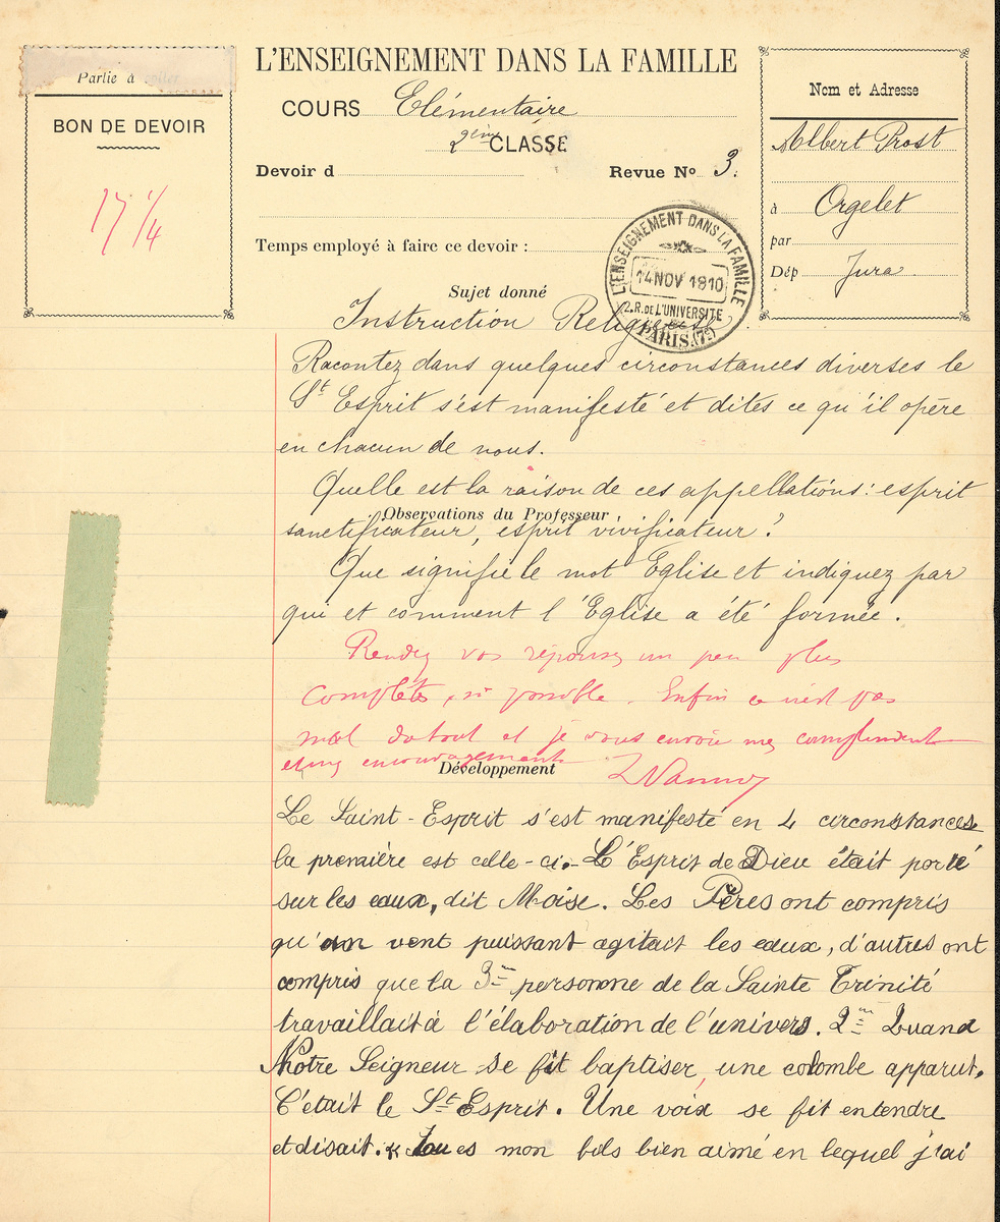 Partie à coller
L'ENSEIGNEMENT DANS LA FAMILLE
BON DE DEVOIR
17 1/4
COURS Elémentaire
2ème CLASSE
Devoir d
Revue No 3.
Temps employé à faire ce devoir :
Nom et Adresse
Albert Prost
à Orgelet
par
Dép Jura
L'ENSEIGNEMENT DANS LA FAMILLE
14 NOV 1910
2. R. DE L'UNIVERSITÉ
PARIS (7e)
Sujet donné
Instruction Religieuse
Racontez dans quelques circonstances diverses le
St Esprit s'est manifesté et dites ce qu'il opère
en chacun de nous.
Quelle est la raison de ces appellations : esprit
Observations du Professeur
sanctificateur, esprit vivificateur ?
Que signifie le mot Eglise et indiquez par
qui et comment l'Eglise a été formée.
Rendez vos réponses un peu plus
complètes, si possible. Enfin ce n'est pas
mal du tout et je vous envoie mes compliments
et mes encouragements
Développement
Le Saint-Esprit s'est manifesté en 4 circonstances
la première est celle-ci. L'Esprit de Dieu était porté
sur les eaux, dit Moïse. Les Pères ont compris
qu'un vent puissant agitait les eaux, d'autres ont
compris que la 3me personne de la Sainte Trinité
travaillait à l'élaboration de l'univers. 2me Quand
Notre Seigneur se fit baptiser, une colombe apparut.
C'était le St Esprit. Une voix se fit entendre
et disait. « Tu es mon fils bien aimé en lequel j'ai